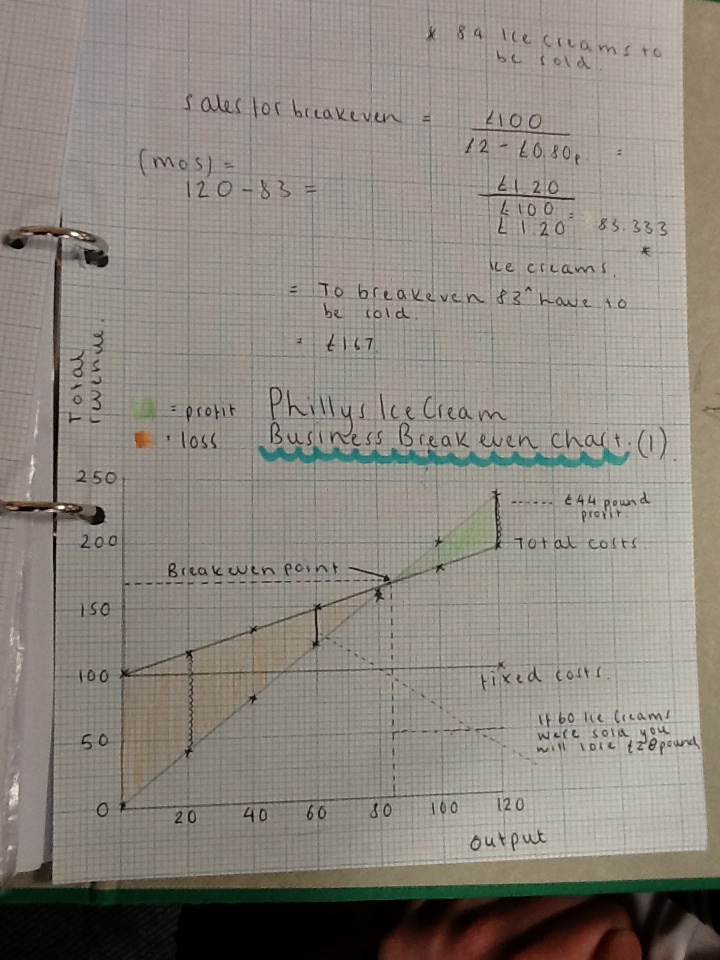 * 84 Ice creams to
be sold.
sales for breakeven = £100
£2 - £0.80p. =
(mos) =
120 - 83 =
£1.20
£100
£1.20 = 83.333
*
Ice creams.
= To breakeven 83^ have to
be sold.
= £167
Total
revenue.
= profit
= loss
Phillys Ice Cream
Business Breakeven chart. (1)
250
200
150
100
50
0
20 40 60 80 100 120
output
£44 pound
profit.
Total costs
Breakeven point
fixed costs.
If 60 Ice Creams
were sold you
will lose £28 pound